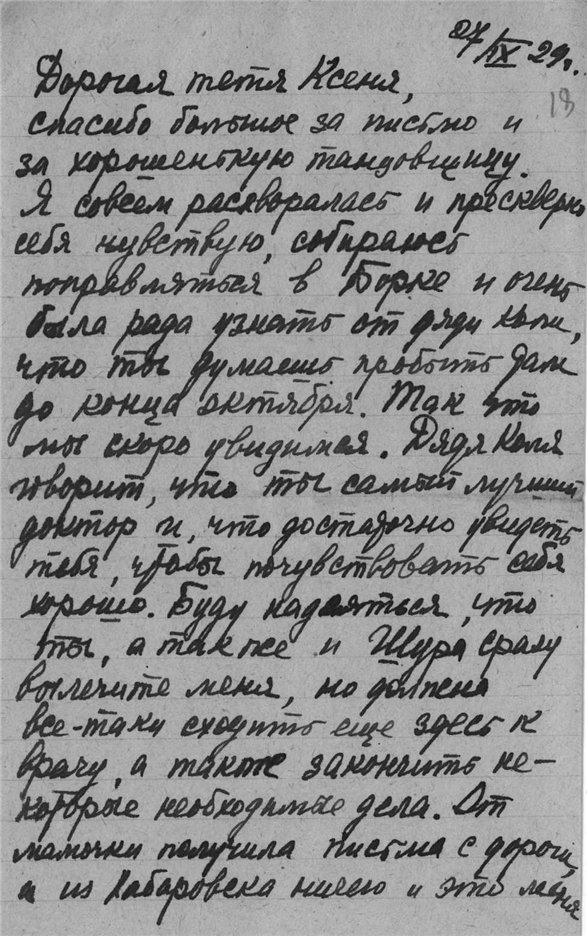 27/IX 29г.
18
Дорогая тетя Ксеня,
спасибо большое за письмо и
за хорошенькую танцовщицу.
Я совсем расхворалась и прескверно
себя чувствую, собираюсь
поправляться в Борке и очень
была рада узнать от дяди Коли,
что ты думаешь пробыть там
до конца октября. Так что
мы скоро увидимся. Дядя Коля
говорит, что ты самый лучший
доктор и, что достаточно увидеть
тебя, чтобы почувствовать себя
хорошо. Буду надеяться, что
ты, а также и Шура сразу
вылечите меня, но должна
все-таки сходить еще здесь к
врачу, а также закончить не-
которые необходимые дела. От
мамочки получила письма с дороги,
а из Хабаровска ничего и это меня